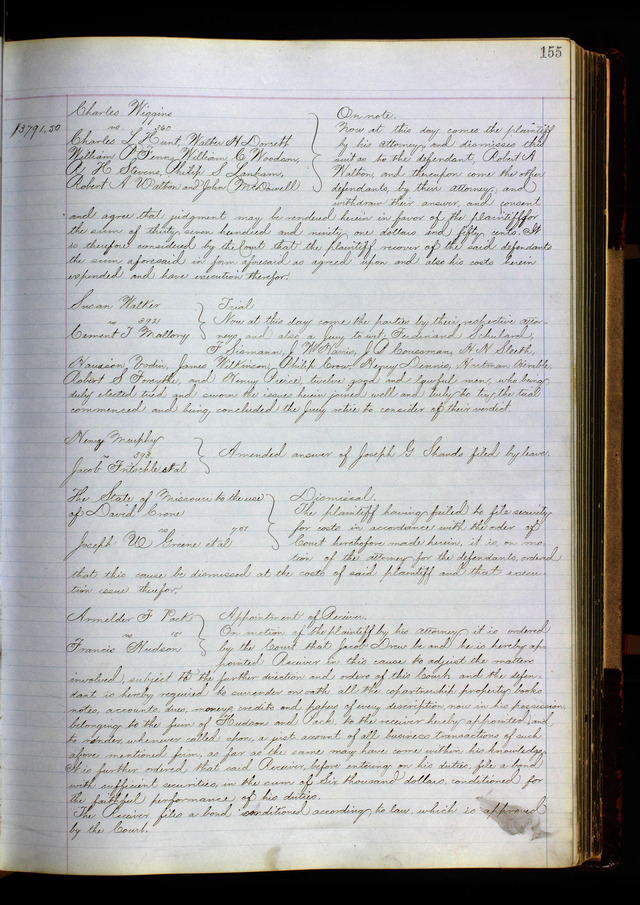 155
Charles Wiggins
$3791.50
vs 360
Charles L Hunt, Walter H Dorsett
William P Fenn, William C Woodson,
R H Stevens, Philip S Lanham,
Robert A Walton and John McDowell
On note.
Now at this day comes the plaintiff
by his attorney and dismisses this
suit as to the defendant, Robert A
Walton, and thereupon come the other
defendants, by their attorney, and
withdraw their answer, and consent
and agree that judgment may be rendered herein in favor of the plaintiff for
the sum of thirty seven hundred and ninety one dollars and fifty cents. It
is therefore considered by the Court that the plaintiff recover of the said defendants
the sum aforesaid in form aforesaid as agreed upon and also his costs herein
expended and have execution therefor.
Susan Walker
vs 3921
Clement T Mallory
Trial
Now at this day come the parties by their respective attor-
neys, and also a jury to wit, Ferdinand Schulard,
F Siemann, J W Harris, J S Cousman, H N Sleeth,
Harrison Yodin, James Wilkinson, Philip Crow, Henry Dennis, Hartman Kemble,
Robert S Forsythe, and Henry Pierce, twelve good and lawful men, who being
duly elected tried and sworn the issues herein joined well and truly to try, the trial
commenced and being concluded the Jury retire to consider of their verdict.
Henry Murphy
vs 393
Jacob Fritschle et al
Amended answer of Joseph G Shands filed by leave.
The State of Missouri to the use
of David Crone
vs 701
Joseph W Greene et al
Dismissal.
The plaintiff having failed to file security
for costs in accordance with the order of
Court heretofore made herein, it is, on mo
tion of the attorney for the defendants, ordered
that this cause be dismissed at the costs of said plaintiff and that execu-
tion issue therefor.
Armelder F Pack
vs 10
Francis Hudson
Appointment of Receiver.
On motion of the plaintiff by his attorney it is ordered
by the Court that Jacob Drew be and he is hereby ap-
pointed Receiver in this cause to adjust the matters
involved, subject to the further direction and orders of this Court, and the defen-
dant is hereby required to surrender on oath all the copartnership property, books
notes, accounts, dues, moneys, credits and papers of every description, now in his possession
belonging to the firm of Hudson and Pack, to the receiver hereby appointed, and
to render, whenever called upon, a just account of all business transactions of such
above mentioned firm, as far as the same may have come within his knowledge.
It is further ordered that said Receiver, before entering on his duties, file a bond
with sufficient securities, in the sum of six thousand dollars, conditioned for
the faithful performance of his duties.
The Receiver files a bond conditioned according to law, which is approved
by the Court.